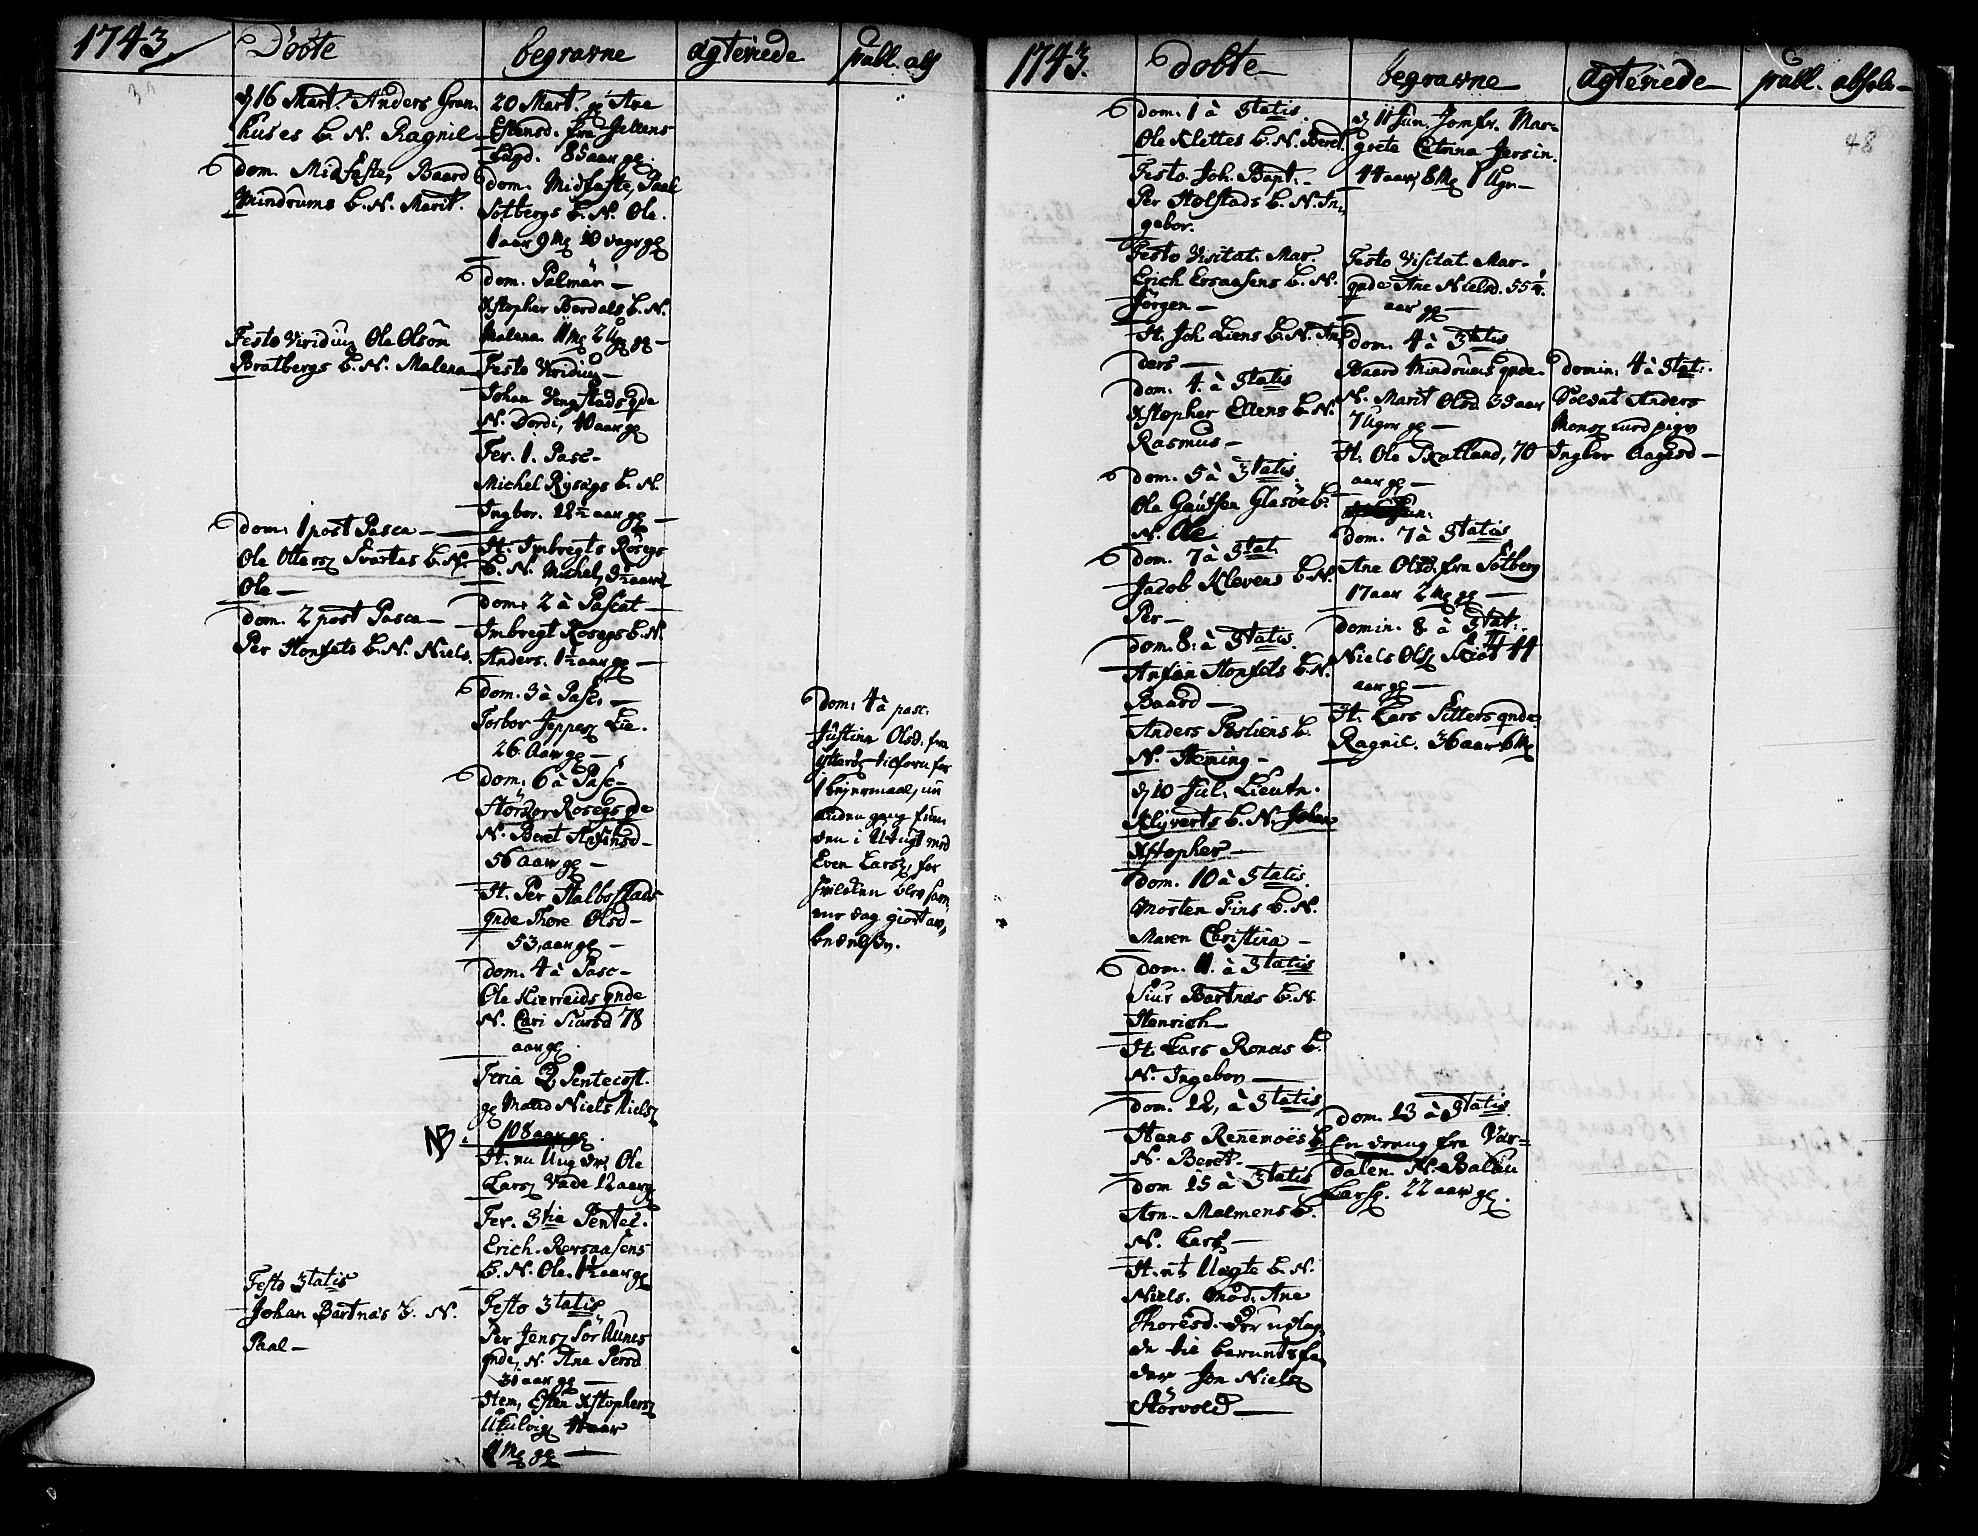 1743
Döbte
begravne
Ægteviede
publ. abs
d 16 Mart. Anders Gran-
huses b. N. Ragnil.
dom. Midfaste, Baard
Mindrums b. N. Marit.
Festo Viridium Ole Olsön
Bratbergs b. N. Malena
dom. 1 post Pasca
Ole Ottersz Svartaas b. N.
Ole
dom. 2 post Pasca
Per Honfets b. N. Niels.
Festo 3tatis
Johan Bartnæs b. N.
Paal
20 Mart. gl Ane
Estensd. fra
85 aar gl.
dom. Midfaste, Paal
Solbergs b. N. Ole.
1 aar 9 Mr 10 dagr gl
dom. Palmar
Xstopher Bordals b. N.
Malena. 11 Mr 2 Ugr gl
Festo Viridium
Johan Vengstads qde
N. Dordi, 40 aar gl
Fer. 1. Pasc
Michel Rysægs b. N.
Ingbor. 12½ aar gl
It. Imbregts Rosegs
b. N. Michel, 3½ aar
dom. 2 à Pascat
Imbregt Rosegs b. N.
Anders. 1½ aar gl
dom. 3 à Pasc.
Torbor Jeppesz Lie.
26 Aar gl
dom. 6 à Pasc
Rosegs qde
N. Beret
56 aar gl
It. Per Halbostads
qnde Thore Olsd
53, aar gl
dom. 4 à Pasc
Ole Kierreids qnde
N. Cari Siursd 78
aar gl.
Feria 2 Pentecost.
gl Mand Niels Nielsz
NB. 108 aar gl.
It. en Ung dr, Ole
Larsz Vade 12 aar gl
Fer. 3tia Pentec.
Erich Rersaasens
b. N. Ole. 1½ aar gl
Festo 3tatis
Per Jensz Sör Aunes
qnde, N. Ane Persd
30 aar gl
Item, Esten Xstophersz
Ulvilvig, 11 aar
11 Mr gl
dom. 4 à pasc.
Justina Olsd. fra
Ytterö tilforn for
1 Leyermaal, nu
anden gang fun-
den i Utugt med
Even Larsz, for
hvilcken blev sam-
me dag giort af-
bedelse.
1743.
döbte
begravne
Ægteviede
publ. absolu
48
dom. 1 à 3tatis.
Ole Klettes b. N. Beret.
Festo Joh. Bapt.
Per Holstads b. N. In-
gebor.
Festo Visitat. Mar
Erich Ersaasens b. N.
Jörgen
It. Joh Liens b. N. An-
ders
dom. 4. à 3tatis
Xstopher Ellens b. N.
Rasmus
dom. 5 à 3tatis.
Ole Gautsen Glasöe b.
N. Ole
dom. 7 à 3tat
Jacob Klevens b. N.
Per
dom. 8. à 3tatis.
Anfin Honfets b. N.
Baard
Anders b.
N. Heming
d 10 Jul. Lieutn.
Klyverts b. N. Johan
Xstopher
dom. 10 à 3tatis.
Mosten Fins b. N.
Maren Christina
dom. 11. à 3tatis
Siur Bartnæs b. N.
Henrich
It. Lars Ronæs b.
N. Ingebor
dom. 12, à 3tatis
Hans Rennemoes b.
N. Beret.
dom 15 à 3tatis
Arn. Malmens b.
N. Lars
It. et Uægte b. N.
Niels. Mod. Ane
Thoresd. Der udlag-
de til barnetsfa-
der Jon Nielsz
Störvold
d 11 Jun. Jomfr. Mar-
grete Catrina Jersin.
44 aar, 8 Mr 1 Ugr
Festo Visitat. Mar-
qnde Ane Nielsd. 55¼.
aar gl
dom. 4 à 3tatis
Baard Mindrums qnde.
N. Marit Olsd 39 aar
7 Ugr gl
It. Ole Skatland, 70
aar gl
dom. 7 à 3tatis
Ane Olsd. fra Solberg
17 aar 2 Mr gl
Domin. 8 à 3tat.
Niels Olsz 44
aar gl
It. Lars Sitters qnde
Ragnil. 36 aar 6 Mr
dom. 13 à 3tatis.
En dreng fra Vær-
dalen N.
Larsz. 22 aar gl.
Domin. 4 à 3tat:.
Soldat Anders
Monsz med pigen
Ingbor Aagesd